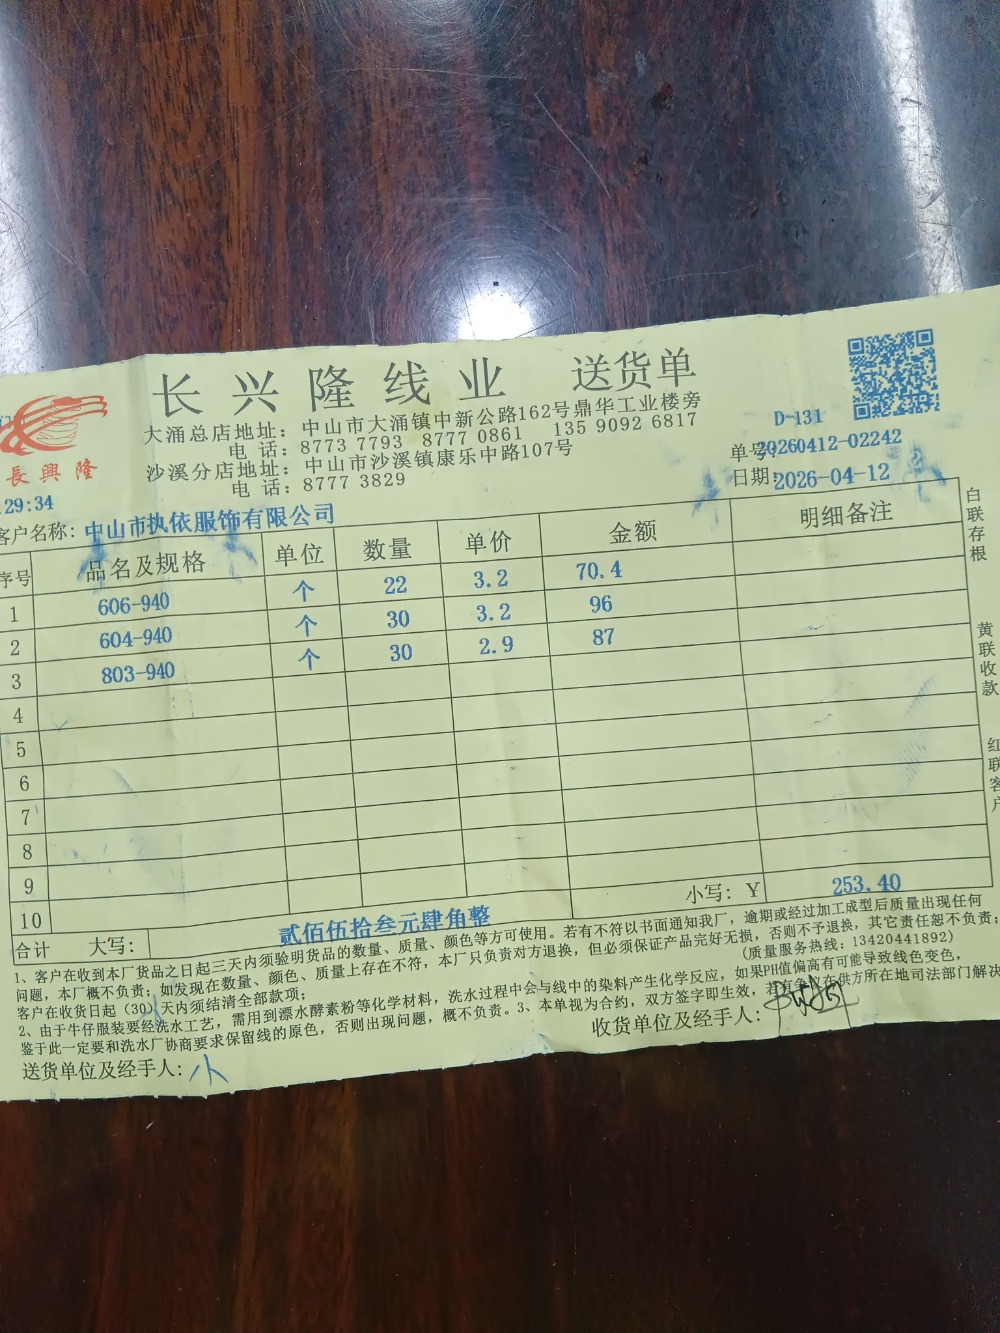 长兴隆线业 送货单
長興隆
大涌总店地址：中山市大涌镇中新公路162号鼎华工业楼旁
电 话：8773 7793 8777 0861 135 9092 6817
沙溪分店地址：中山市沙溪镇康乐中路107号
电 话：8777 3829
D-131
单号20260412-02242
日期:2026-04-12
29:34
客户名称：中山市执依服饰有限公司
序号 品名及规格 单位 数量 单价 金额 明细备注
1 606-940 个 22 3.2 70.4
2 604-940 个 30 3.2 96
3 803-940 个 30 2.9 87
4
5
6
7
8
9
10
合计 大写： 贰佰伍拾叁元肆角整 小写：Y 253.40
白联存根
黄联收款
红联客户
1、客户在收到本厂货品之日起三天内须验明货品的数量、质量、颜色等方可使用。若有不符以书面通知我厂，逾期或经过加工成型后质量出现任何
问题，本厂概不负责；如发现在数量、颜色、质量上存在不符，本厂只负责对方退换，但必须保证产品完好无损，否则不予退换，其它责任恕不负责；
客户在收货日起（30）天内须结清全部款项；
(质量服务热线：13420441892)
2、由于牛仔服装要经洗水工艺，需用到漂水酵素粉等化学材料，洗水过程中会与线中的染料产生化学反应，如果PH值偏高有可能导致线色变色，
鉴于此一定要和洗水厂协商要求保留线的原色，否则出现问题，概不负责。3、本单视为合约，双方签字即生效，若有争议在供方所在地司法部门解决
送货单位及经手人：小
收货单位及经手人：